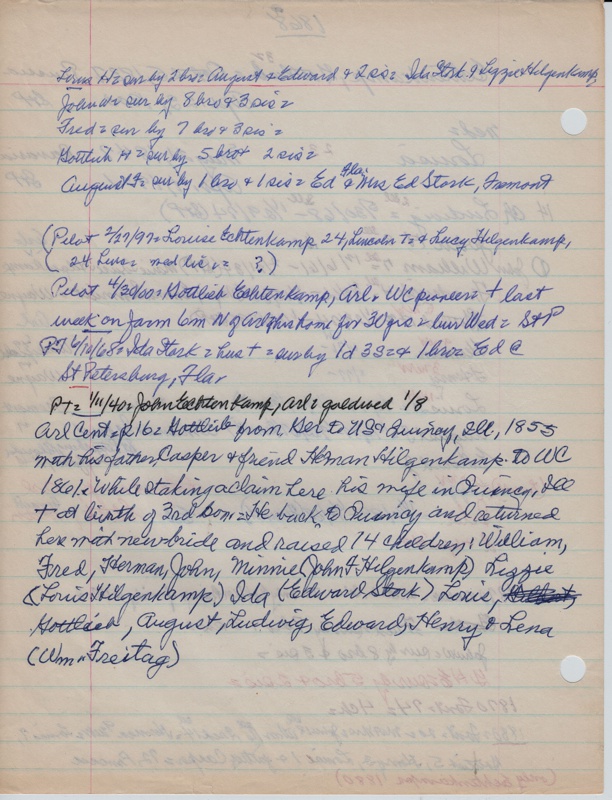 1868
Louis H = sur by 2 bro = August & Edward & 2 sis = Ida Stork & Lizzie Hilgenkamp
John W = sur by 8 bro & 3 sis =
Fred = sur by 7 bro & 3 sis =
Gottlieb H = sur by 5 bro + 2 sis =
August F = sur by 1 bro & 1 sis = Ed Fla & Mrs Ed Stork, Fremont
(Pilot 2/27/97 = Louise Echtenkamp 24, Lincoln T = & Lucy Hilgenkamp,
( 24 Lucas = med lic = ?)
Pilot 4/20/00 = Gottlieb Echtenkamp, Arl. WC pioneer = + last
week on farm 6 m N of Arl this home for 30 yrs = bur Wed = St P
PT 6/10/68 = Ida Stork = hus + = sur by 1 d 3 S = & 1 bro = Ed C
St Petersburg, Fla.
PT = 1/11/40 = John Echtenkamp, Arl = gold wed 1/8
Arl Cent = p 16 = Gottlieb from Ger to US & Quincy, Ill, 1855
with his father, Casper & friend Herman Hilgenkamp. To WC
1861. While staking a claim here his wife in Quincy, Ill
+ at birth of 3rd son. = He back to Quincy and returned
here with new bride and raised 14 children: William,
Fred, Herman, John, Minnie (John F Hilgenkamp), Lizzie
(Louis Hilgenkamp,) Ida (Edward Stork) Louis,
Gottlieb, August, Ludwig, Edward, Henry & Lena
(Wm Freitag)